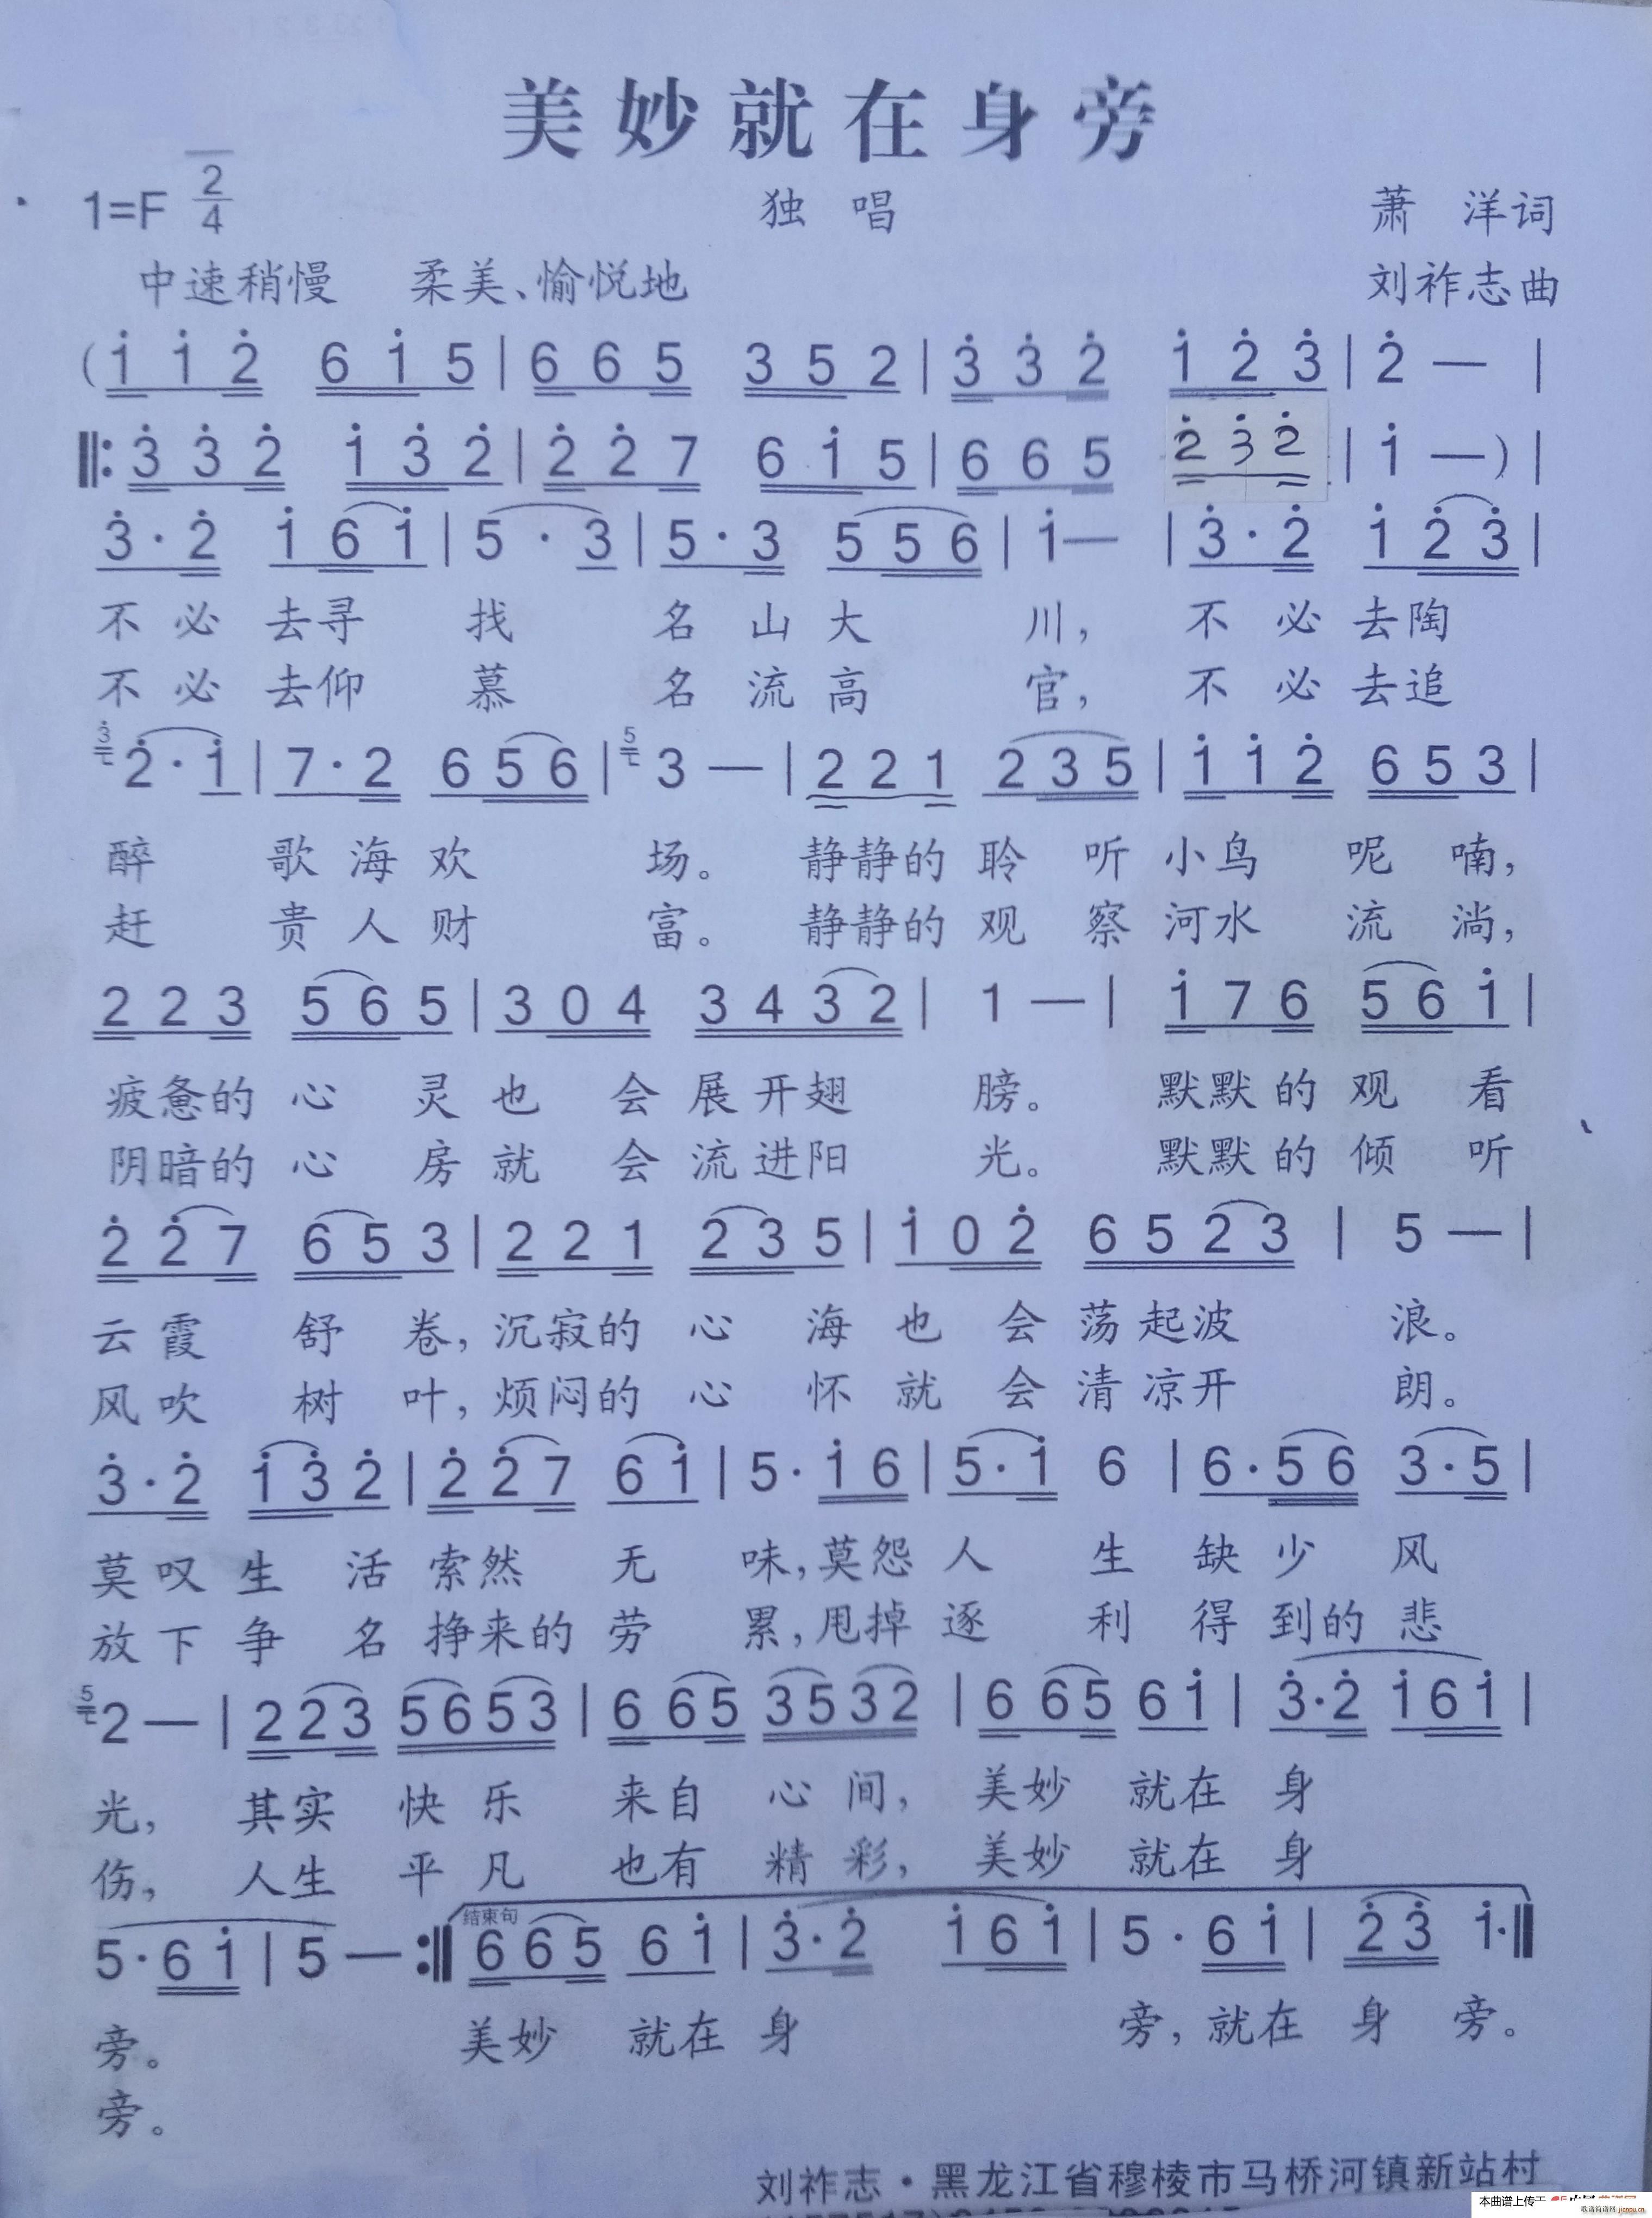 美妙就在身旁
1=F 2/4 独 唱 萧 洋词
中速稍慢 柔美、愉悦地 刘祚志曲
(i̇ i̇ 2̇ 6 i̇ 5 | 6 6 5 3 5 2 | 3̇ 3̇ 2̇ i̇ 2̇ 3̇ | 2̇ — |
‖: 3̇ 3̇ 2̇ i̇ 3̇ 2̇ | 2̇ 2̇ 7 6 i̇ 5 | 6 6 5 2̇ 3̇ 2̇ | i̇ — ) |
3̇ · 2̇ i̇ 6 i̇ | 5 · 3 | 5 · 3 5 5 6 | i̇ — | 3̇ · 2̇ i̇ 2̇ 3̇ |
不 必 去寻 找 名 山 大 川, 不 必 去陶
不 必 去仰 慕 名 流 高 官, 不 必 去追
3̇ 2̇ · i̇ | 7 · 2 6 5 6 | 5 3 — | 2 2 1 2 3 5 | i̇ i̇ 2̇ 6 5 3 |
醉 歌 海 欢 场。 静静的 聆 听 小鸟 呢 喃,
赶 贵 人 财 富。 静静的 观 察 河水 流 淌,
2 2 3 5 6 5 | 3 0 4 3 4 3 2 | 1 — | i̇ 7 6 5 6 i̇ |
疲惫的 心 灵 也 会 展 开翅 膀。 默默 的 观 看
阴暗的 心 房 就 会 流 进阳 光。 默默 的 倾 听
2̇ 2̇ 7 6 5 3 | 2 2 1 2 3 5 | i̇ 0 2̇ 6 5 2 3 | 5 — |
云 霞 舒 卷, 沉寂的 心 海 也 会 荡 起波 浪。
风 吹 树 叶, 烦闷的 心 怀 就 会 清 凉开 朗。
3̇ · 2̇ i̇ 3̇ 2̇ | 2̇ 2̇ 7 6 i̇ | 5 · i̇ 6 | 5 · i̇ 6 | 6 · 5 6 3 · 5 |
莫 叹 生 活 索然 无 味, 莫怨 人 生 缺 少 风
放 下 争 名 挣来的 劳 累, 甩掉 逐 利 得 到的 悲
5 2 — | 2 2 3 5 6 5 3 | 6 6 5 3 5 3 2 | 6 6 5 6 i̇ | 3̇ · 2̇ i̇ 6 i̇ |
光, 其实 快 乐 来自 心 间, 美妙 就在 身
伤, 人生 平 凡 也有 精 彩, 美妙 就在 身
结束句
5 · 6 i̇ | 5 — :‖ 6 6 5 6 i̇ | 3̇ · 2̇ i̇ 6 i̇ | 5 · 6 i̇ | 2̇ 3̇ i̇ · ‖
旁。 美妙 就在 身 旁, 就在 身 旁。
旁。
刘祚志·黑龙江省穆棱市马桥河镇新站村
本曲谱上传于